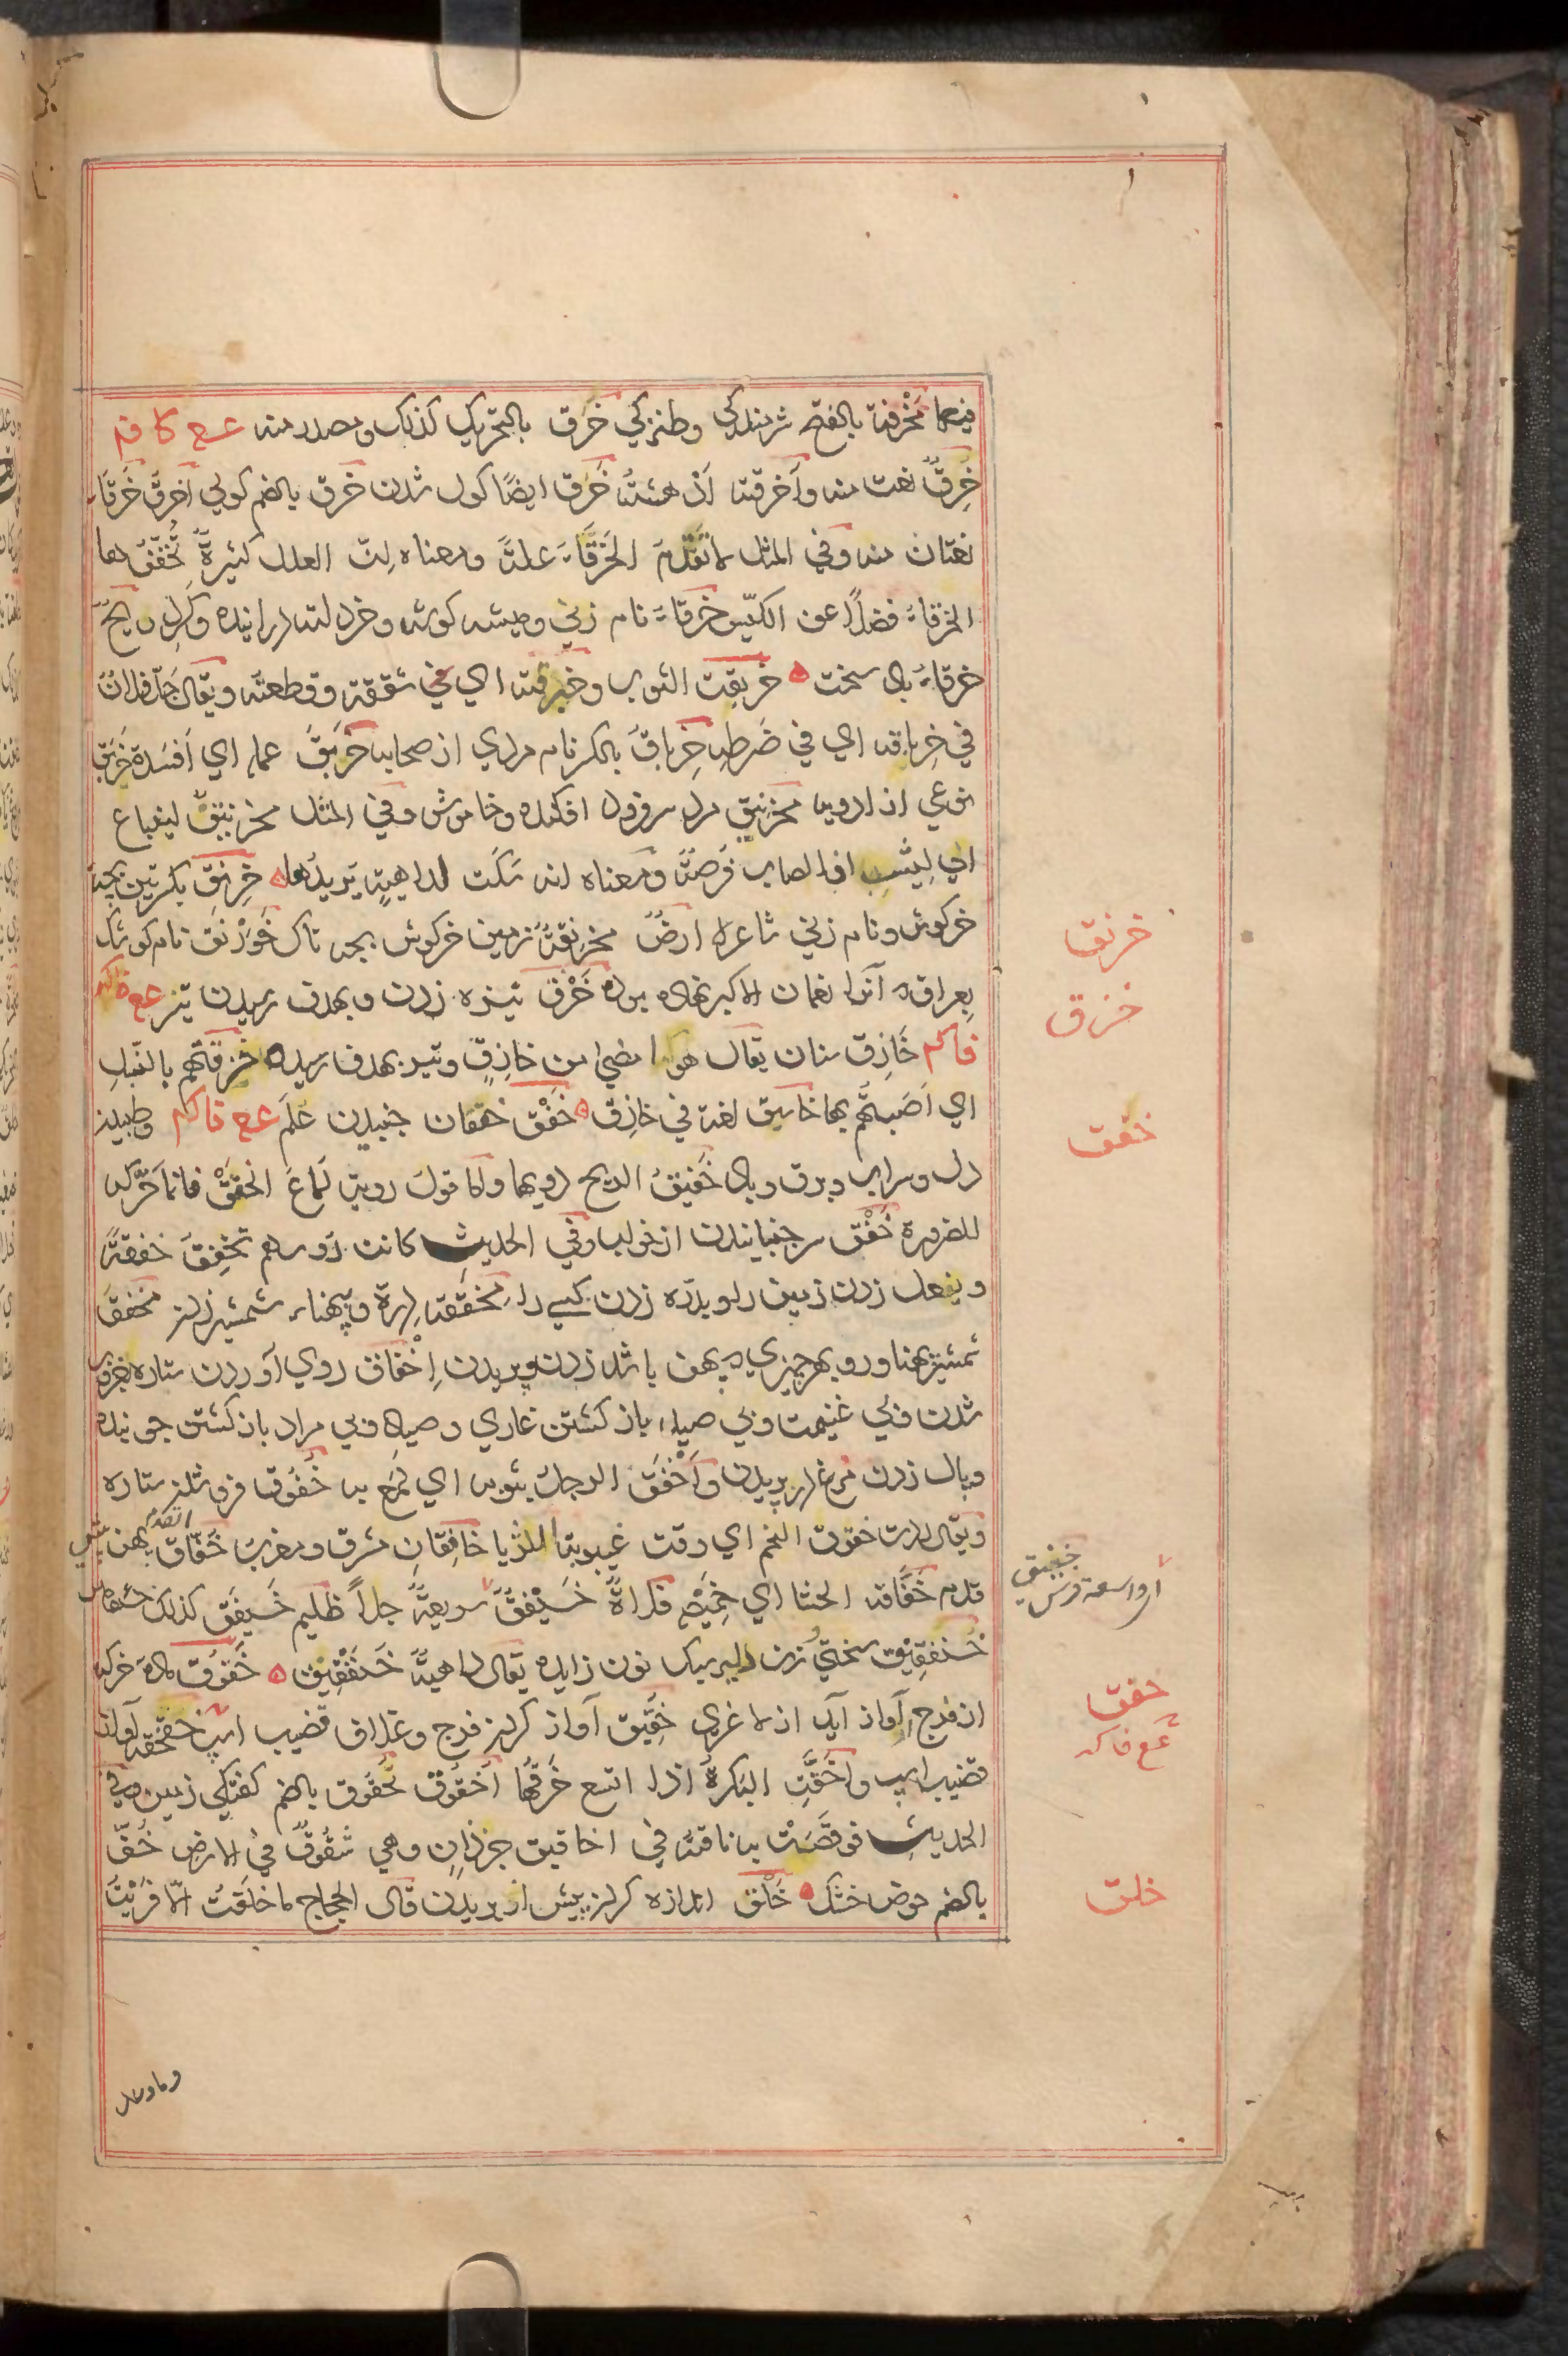 فيهما مَخْرقة بالفتح شرمندكي وطنزكي خَرَق بالتحريك كذلك ومصدر منه ع ع كا فم
خَرِقٌ نعت منه وأخرقته اَدْهشته خَرَق ايضًا كول شدن خرق بالضم كولي اَخرقُ خَرقاءُ
نعتان منه وفي المثل لا تَعْدَمُ الخَرْقَاءُ علةً ومعناه اِنّ العلل كثيرةٌ تُخفّفُ لها
الخرقاءُ فضلًا عن الكيّس خرقاءُ نام زني وميشه كوش
خرقاءُ باد سخت خربقت الثوب وخبرقته اي شققته وقطعته ويقال جدّ فلانٌ
في خِرباقه اي في ضَرطه خِرباق بالكسر نام مردي از صحابه خَربَقَ عمله اي اَفسَدَه خَربَق
نوعي از ادويه مخرنبق مرد سر فرود افكنده وخاموش وفي المثل مخرنبقٌ لينباع
اي لِيَثِبَ اذا اصاب فُرصةً ومعناه انه سكت لداهيةٍ يُريدُها خِرنِق بكسرتين بچه
خركوش ونام زني شاعره ارضٌ مخرنقةٌ زمين خركوش بچه ناك خَوَرْنَق نام كوشك
بعراق كه آنرا نعمان الاكبر نهاده بوده خَزْق نيزه زدن وبهدف رسيدن تير ع ع فاكم
فاكم خَازِق سنان يقال هو امضى من خازِقٍ وتير بهدف رسيده خزقتهم بالنَّبلِ
اي اَصَبتُهم بها خاسق لغة في خازِق خَفْق خفقان جنبيدن عَلَم ع ع فاكم وطپيدن
دل وسراب وبرق وباد خَفيقُ الريح دويها واما قول روبة لمّاعَ الخَفَقْ فانما حَرّكه
للضرورة خَفْق سر جنبانيدن از خواب وفي الحديث كانت رؤسهم تَخْفِقُ خفقةً
ويفعل زدن زمين را وبدرّه زدن كسي را مِخفقة دِرة وپهناء شمشير زدن مخفق
شمشير پهناور وبهر چيزي كه پهن باشد زدن وپريدن اِخْفاق روي آوردن ستاره بغروب
شدن وبي غنيمت وبي صيد باز كشتن غازي وصياد وبي مراد باز كشتن جوينده
وبال زدن مرغ در پريدن وأَخْفَقَ الرجل بثوبه اي لَمَعَ به خُفُوق فرو شدن ستاره
ويقال وردت خفوق النجم اي وقت غيبوبة الثريا خافِقانِ مشرق ومغرب خَفّاق القدم پهن
قدم خَفّاقة الحشا اي خَميصُ فلاةٌ خَيفَقٌ سريعةٌ جدًّا ظليم خَيفَق كذلك
خَنفَقِيق سختي وزن نون زايده يقال داهيةٌ خَنفَقِيق خَقُوق ماده خر كه
از فرج آواز آيد از لاغري خَقيق آواز كردن فرج وغلاف قضيب اسپ خقخقه آواز
قضيب اسپ واخَقَّتِ البَكرةُ اذا اتسع خَرقُها اُخقوق خُقوق بالضم كفتكي زمين وفي
الحديث فوقَصَتْ به ناقته في اخاقيق جرذانٍ وهي شُقوقٌ في الارض خُقّ
بالضم حوض خشك خَلْق اندازه كردن پيش از بريدن قال الحجاج ما خلقتُ الّا فرَيتُ
خرنق
خزق
خفق
خيفق
اي واسعة
خقق
ع ع فاكم
خلق
وما وعد